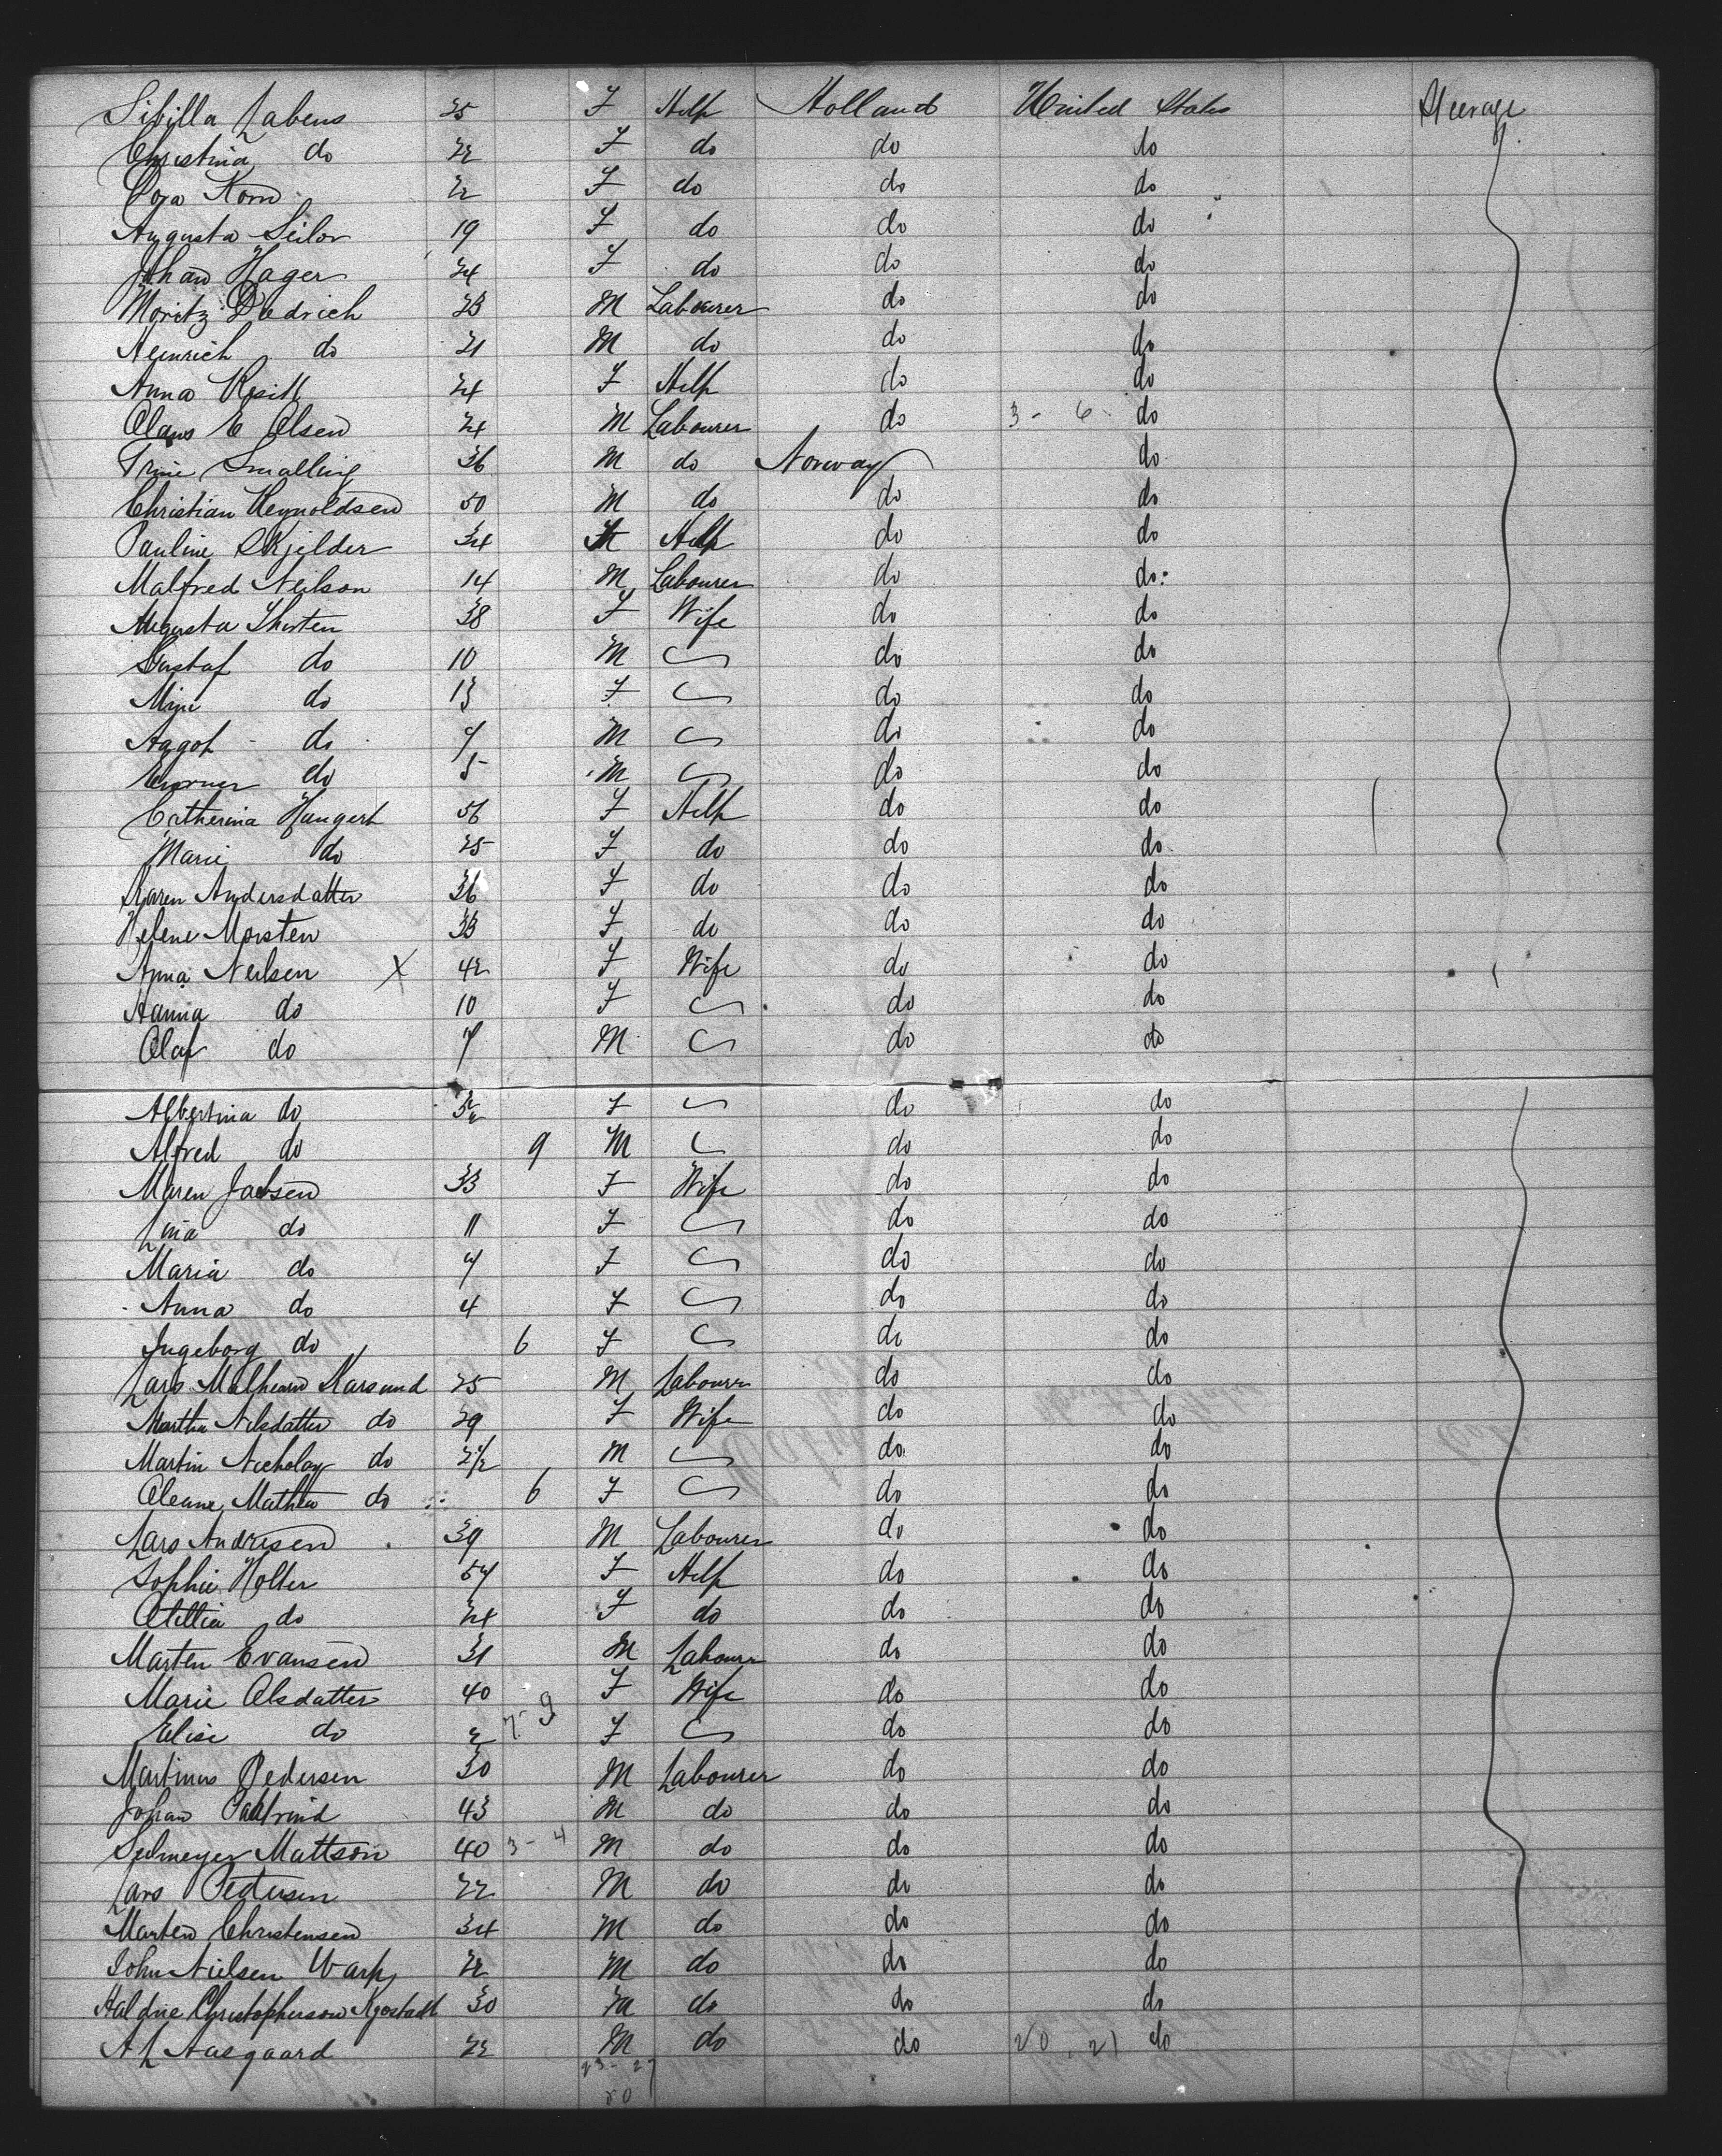 Sibilla Labens 25 F Help Holland United States Steerage
Christina do 22 F do do do
Cora Korn 22 F do do do
Augusta Seilor 19 F do do do
Johan Hager 24 F do do do
Moritz Dedrich 23 M Labourer do do
Heinrich do 21 M do do do
Anna 24 F Help do do
Claus E Olsen 24 M Labourer do 3 - 6 do
Trine Smalling 36 M do Norway do
Christian Reynoldsen 50 M do do do
Pauline Skjelder 34 Help do do
Malfred Neilson 14 M Labourer do do
Augusta Thorten 38 F Wife do do
Gustaf do 10 M do do
Mine do 13 F do do
Aagot do 7 M do do
do 5 M do do
Catherina Haugert 56 F Help do do
Marie do 25 F do do do
Karen Andersdatter 36 F do do do
Helene Morsten 33 F do do do
Anna Neilsen X 42 F Wife do do
Hanna do 10 F do do
Olaf do 7 M do do
Albertina do F do do
Alfred do 9 M do do
Maren Jabsen 33 F Wife do do
Lina do 11 F do do
Maria do 7 F do do
Anna do 4 F do do
Ingeborg do 6 F do do
Lars Karsund 25 M Labourer do do
Martha Nilsdatter do 29 F Wife do do
Martin Nicholay do 2 1/2 M do do
Oleane Mathea do 6 F do do
Lars Andresen 39 M Labourer do do
Sophie Holter 57 F Help do do
Otillia do 24 F do do do
Marten Evansen 31 M Labourer do do
Marie Olsdatter 40 F Wife do do
Elise do 2 7 - 9 F do do
Martinus Pedersen 30 M Labourer do do
Johan 43 M do do do
Selmeyer Mattson 40 3 - 4 M do do do
Lars Pedersen 22 M do do do
Marten Christensen 34 M do do do
John Nielsen Warp 22 M do do do
Christopherson 30 M do do do
A L Aasgaard 22 M do do 20 . 21 do
23 - 27
20